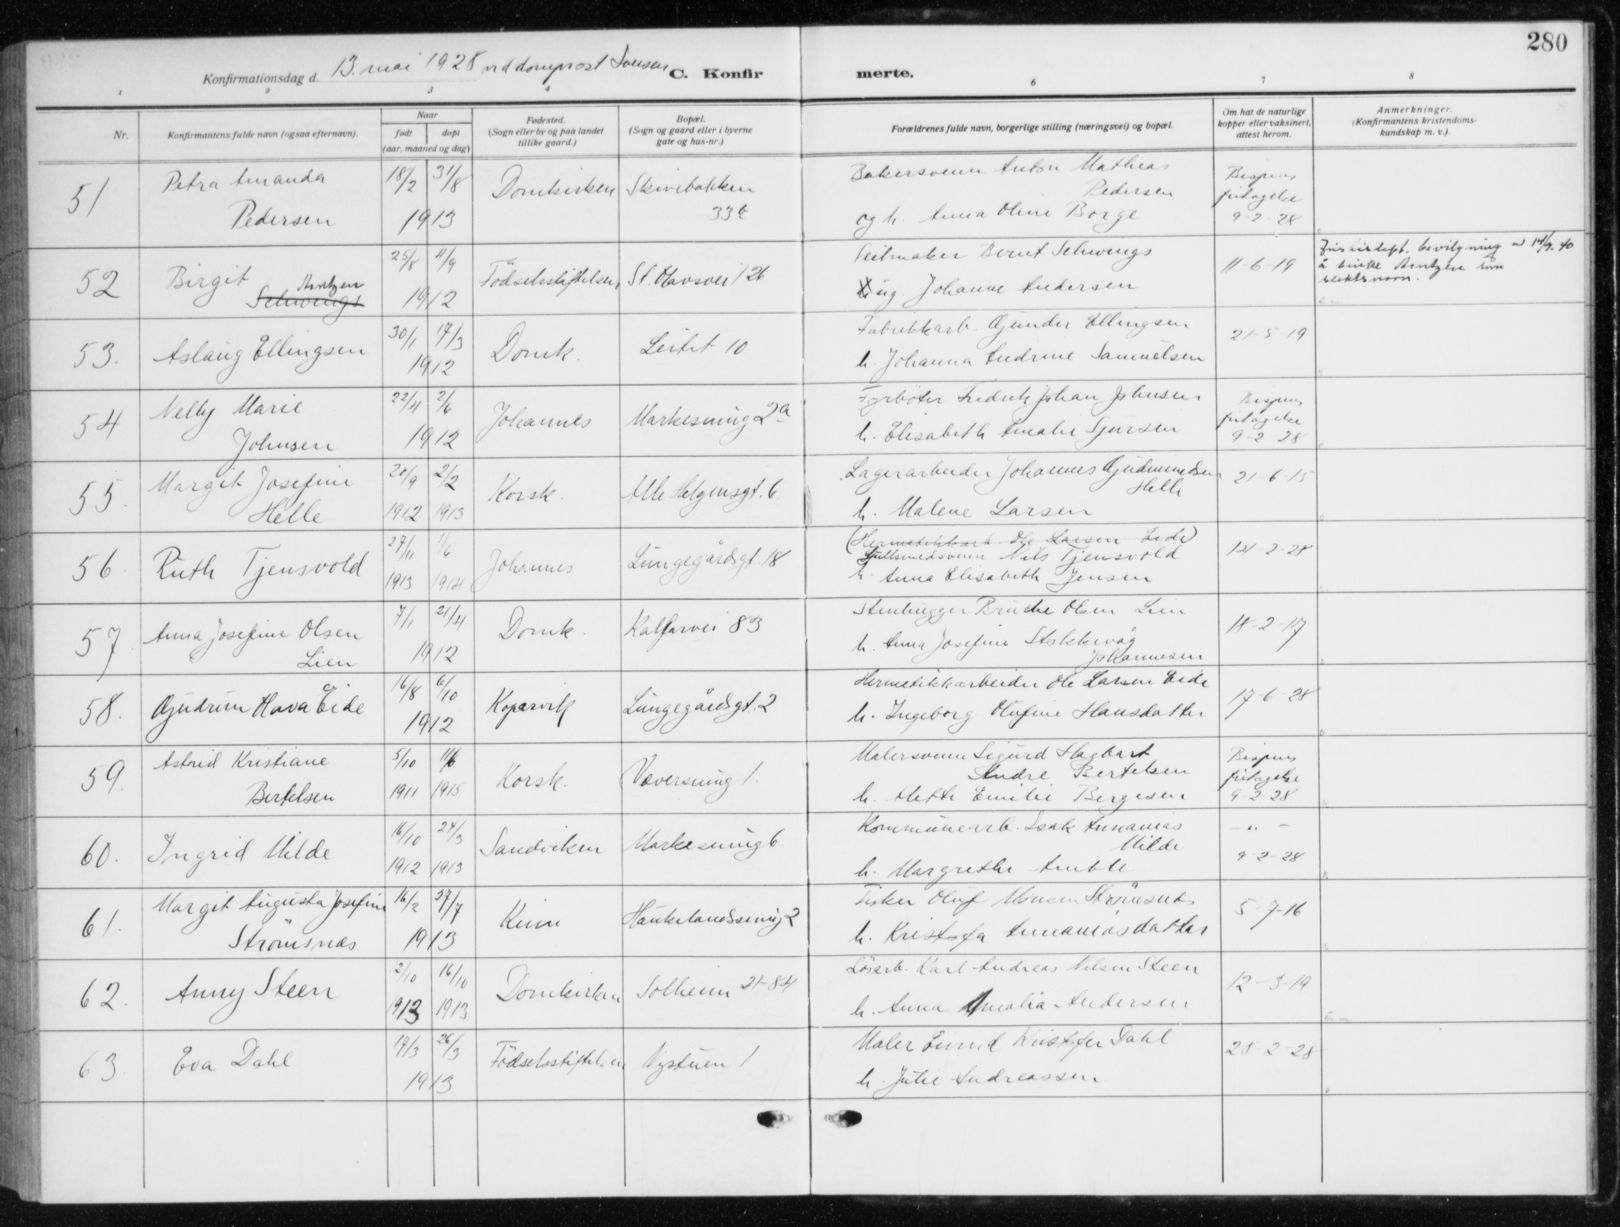 280
Konfirmationsdag d. 13. mai 1928 ved domprost
C. Konfirmerte.
1 2 3 4 6 7 8
Nr.
Konfirmantens fulde navn (ogsaa efternavn).
Naar
født døpt
(aar, maaned og dag)
Fødested.
(Sogn eller by og paa landet
tillike gaard.)
Bopæl.
(Sogn og gaard eller i byerne
gate og hus-nr.)
Forældrenes fulde navn, borgerlige stilling (næringsvei) og bopæl.
Om hat de naturlige
kopper eller vaksinert,
attest herom.
Anmerkninger.
(Konfirmantens kristendoms-
kundskap m. v.).
51 Petra Amanda Pedersen 18/2 31/8 1913 Domkirken Skivebakken 33b
Bakersvenn Anton Mathias Pedersen
og h. Anna Oline Borge
Bispens fritagelse 9-2-28
52 Birgit Arntzen Schwings 25/8 4/9 1912 Fødselsstiftelsen St. Olavsvei 26
Seilmaker Bernt Schwings
ug. Johanne Andersen
11-6-19
bevilgning av 14/9. 40
å bruke Arntzen som
slektsnavn.
53. Aslaug Ellingsen 30/1 17/3 1912 Domk. Leitet 10
Fabrikkarb. Gunder Ellingsen
h. Johanna Andrine Samuelsen
21-5-19
54 Nelly Marie Johnsen 22/4 2/6 1912 Johannes Markesmug 2a
Fyrbøter Fredrik Johan Johnsen
h. Elisabeth Amalie Sjursen
Bispens fritagelse 9-2 28
55. Margit Josefine Helle 20/9 1912 2/2 1913 Korsk. Alle Helgensgt. 6
Lagerarbeider Johannes Gudmundsen Helle
h. Malene Larsen
21-6-15
56. Ruth Tjensvold 27/11 1913 1/6 1914 Johannes Lungegårdsgt. 18
(Hermetikkarb. Ole Larsen Eide)
Gullsmedsvenn Nils Tjensvold
h. Anna Elisabeth Jensen
14-2-28
57. Anna Josefine Olsen Lien 7/1 21/4 1912 Domk. Kalfarvei 83
Stenhugger Olsen Lien
h. Anna Josefine Stokkevåg Johannesen
18-2-17
58. Gudrun Hava Eide 16/8 6/10 1912 Kopervik Lungegårdsgt. 2
Hermetikkarbeider Ole Larsen Eide
h. Ingeborg Olufine Hansdatter
17-6-28
59. Astrid Kristiane Bertelsen 5/10 1911 11/6 1915 Korsk. Væversmug 1.
Malersvenn Sigurd Hagbart Andre Bertelsen
h. Mette Emilie Bergesen
Bispens fritagelse 9-2 28
60. Ingrid Milde 16/10 1912 24/3 1913 Sandviken Markesmug 6
Kommunearb. Isak Annanias Milde
h. Margrethe Amble
- " - 9-2-28
61. Margit Augusta Josefine Strömsnes 16/2 1913 Kinn Haukelandssmug 2
Fisker Oluf Monsen Strömsnes
h. Kristofa Annaniasdatter
5-7-16
62. Anny Steen 2/10 1913 16/10 1913 Domkirken Solheim 21-84
Løsarb. Karl Andreas Nilsen Steen
h. Anna Amalia Andersen
12-3-19
63. Eva Dahl 17/3 26/3 1913 Fødselsstiftelsen Nystuen 1
Maler Kristofer Dahl
h. Julie Andreassen
28-2-28